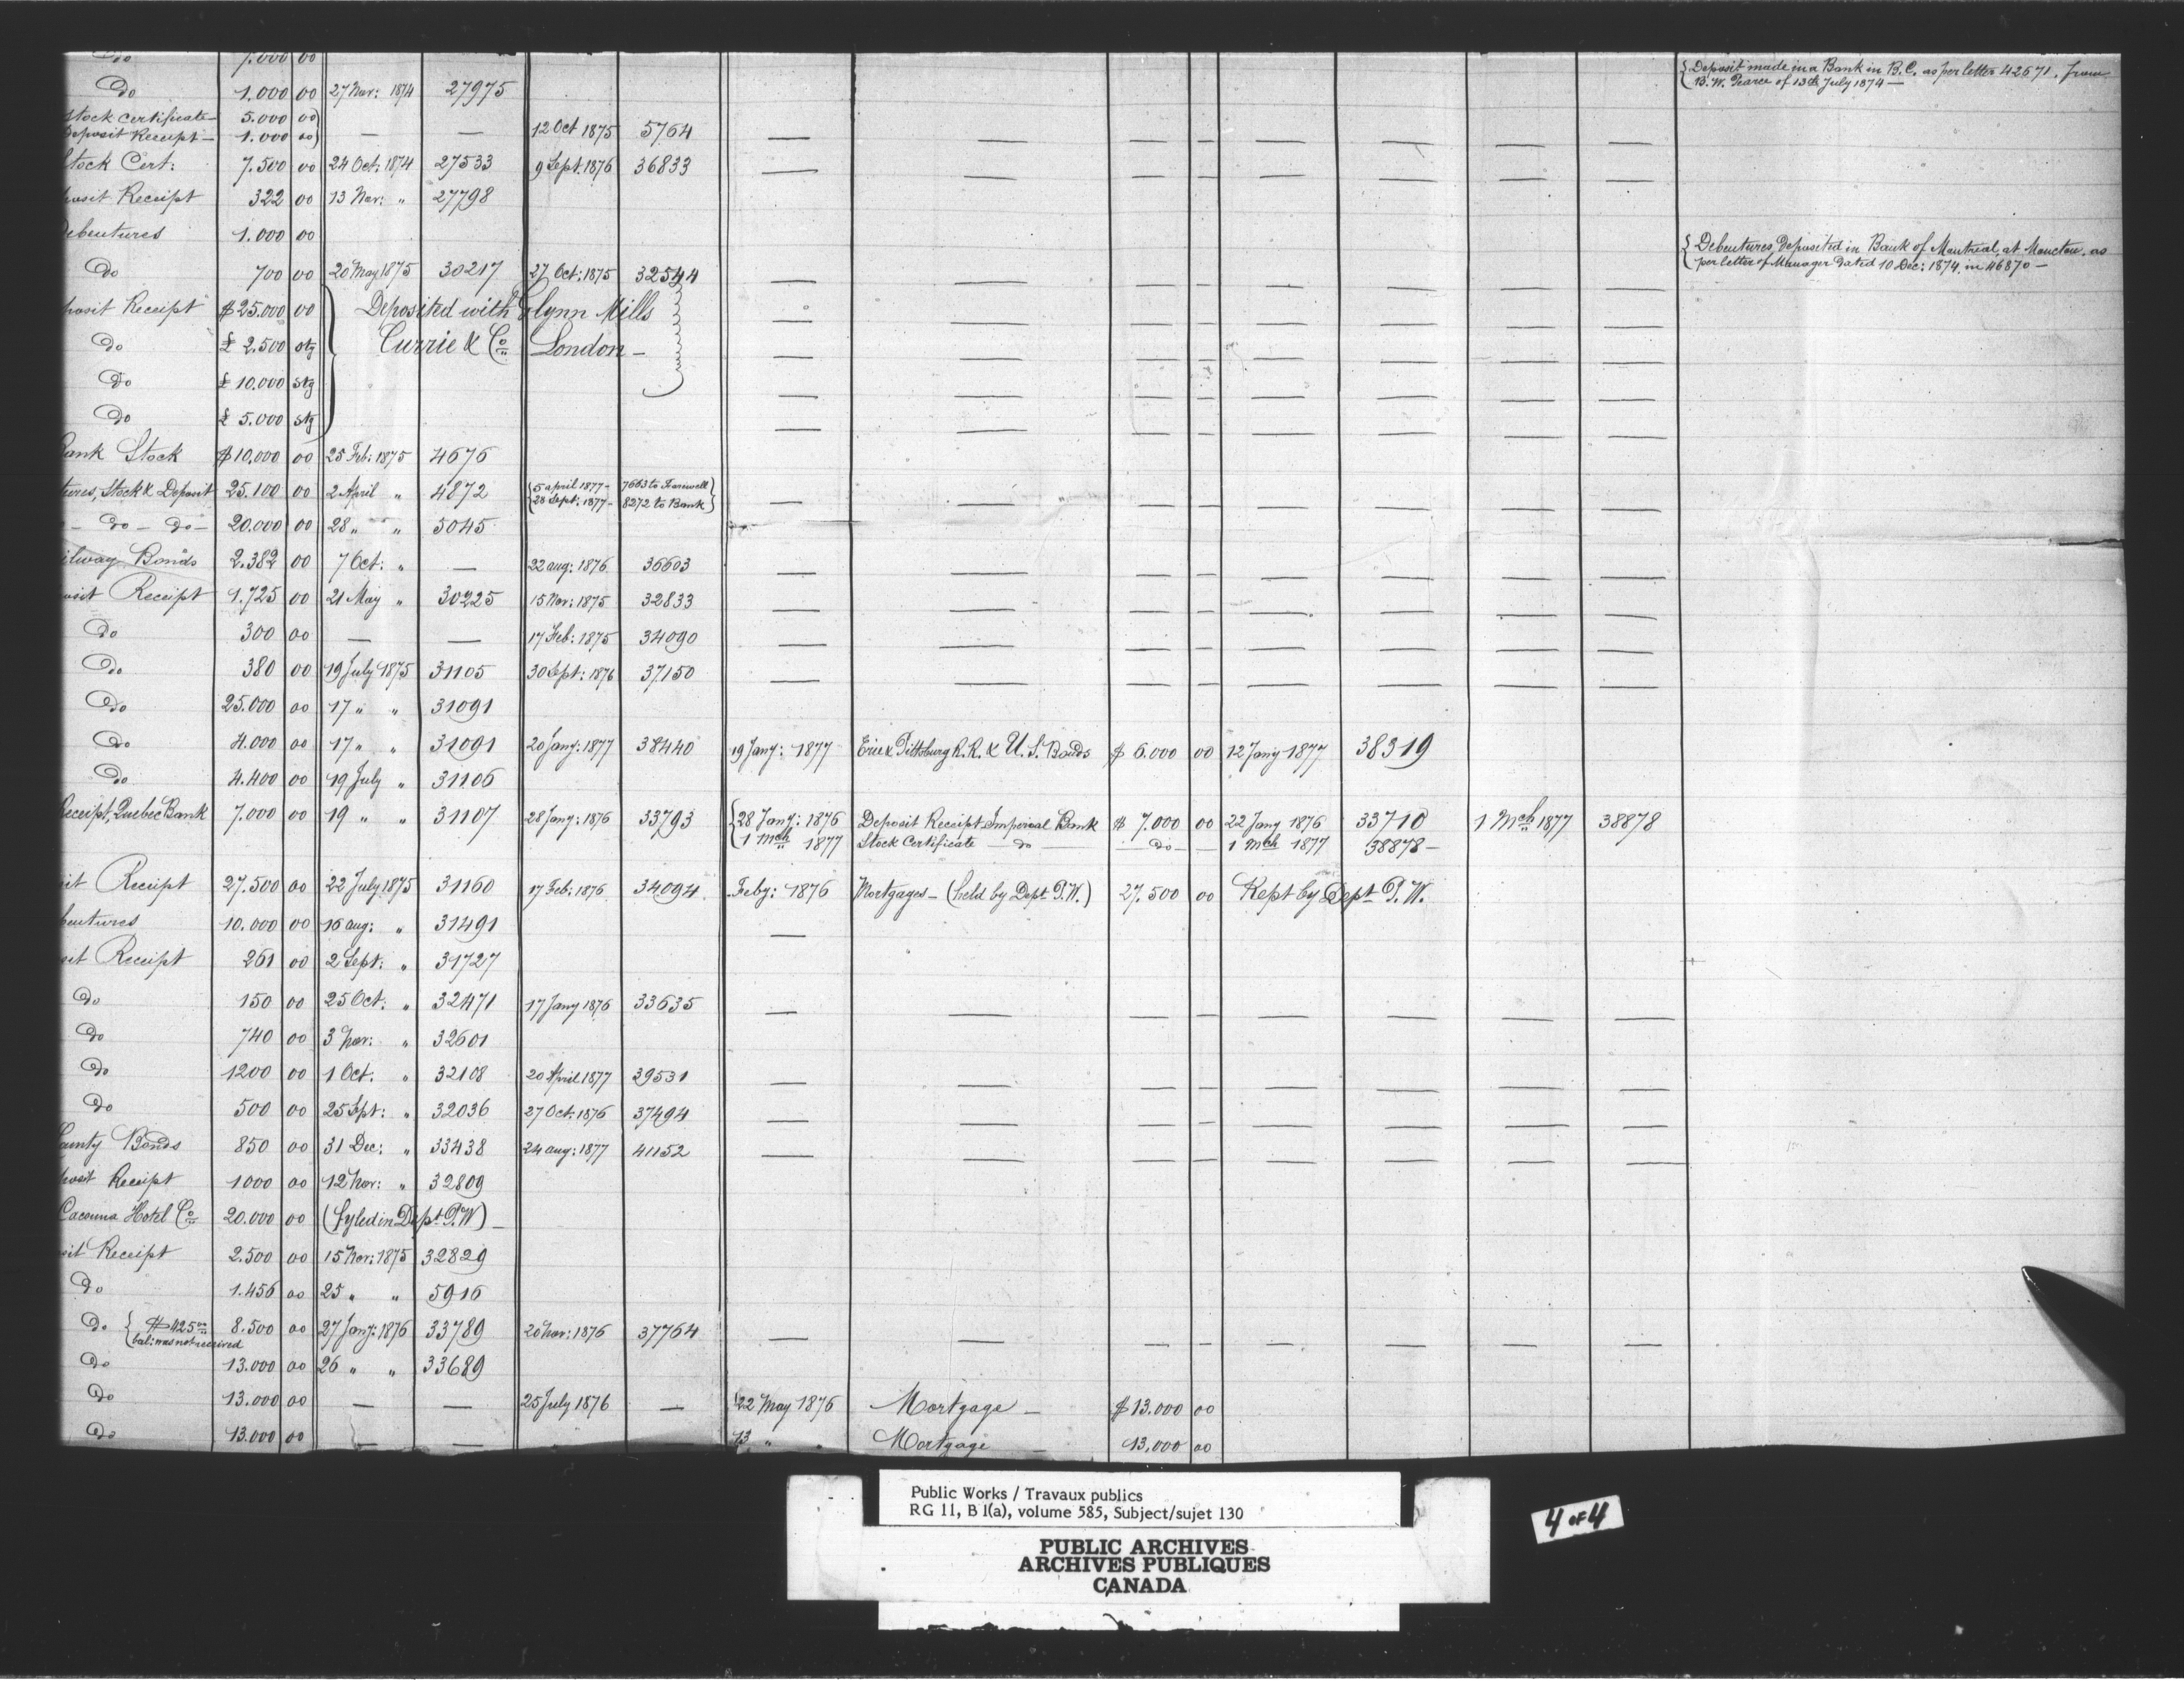 Do 1.000 00
Do 1.000 00 27 Nov: 1874 27975 { Deposit made in a Bank in B.C. as per letter 42671. from
B. W. Pearce of 13th July 1874 —
Stock Certificate — 5.000 00
Deposit Receipt — 1.000 00 — — 12 Oct 1875 5764 — — — — — — — —
Stock Cert: 7.500 00 24 Oct: 1874 27533 9 Sept. 1876 36833 — — — — — — — —
posit Receipt 322 00 13 Nov: " 27798
Debentures 1.000 00 { Debentures deposited in Bank of Montreal, at Moncton, as
per letter of Manager dated 10 Dec: 1874. in 46870 —
Do 700 00 20 May 1875 30217 27 Oct: 1875 32544 — — — — — — — —
posit Receipt $ 25.000 00 } Deposited with Glynn Mills — — — — — — — —
Do £ 2.500 stg Currie & Co London — — — — — — — — —
Do £ 10.000 stg — — — — — — — —
Do £ 5.000 stg — — — — — — — —
Bank Stock $ 10.000 00 25 Feb: 1875 4676
tures, Stock & Deposit 25.100 00 2 April " 4872 { 5 april 1877 — 7663 to Farewell }
{ 28 Sept: 1877 — 8272 to Bank } — — — — — — — —
— Do — Do — 20.000 00 28 " " 5045
ilway Bonds 2.382 00 7 Oct: " — 22 aug: 1876 36603 — — — — — — — —
osit Receipt 1.725 00 21 May " 30225 15 Nov: 1875 32833 — — — — — — — —
Do 300 00 — — 17 Feb: 1875 34090 — — — — — — — —
Do 380 00 19 July 1875 31105 30 Sept: 1876 37150 — — — — — — — —
Do 25.000 00 17 " " 31091
Do 4.000 00 17 " " 31091 20 Jany: 1877 38440 19 Jany: 1877 Erie & Pittsburg R.R. & U.S. Bonds $ 6.000 00 12 Jany 1877 38319
Do 4.400 00 19 July " 31106
Receipt, Quebec Bank 7.000 00 19 " " 31107 28 Jany: 1876 33793 { 28 Jany: 1876 Deposit Receipt Imperial Bank $ 7.000 00 22 Jany 1876 33710 1 Mch 1877 38878
1 Mch 1877 Stock Certificate — do — — do — — 1 Mch 1877 38878 —
sit Receipt 27.500 00 22 July 1875 31160 17 Feb: 1876 34094 Feby: 1876 Mortgages — (held by Dept P.W.) 27.500 00 Kept by Dept P.W.
bentures 10.000 00 16 aug: " 31491 —
sit Receipt 261 00 2 Sept: " 31727
Do 150 00 25 Oct: " 32471 17 Jany 1876 33635 — — — — — — — —
Do 740 00 3 Nov: " 32601
Do 1200 00 1 Oct. " 32108 20 April 1877 39531 — — — — — — — —
Do 500 00 25 Sept: " 32036 27 Oct: 1876 37494 — — — — — — — —
County Bonds 850 00 31 Dec: " 33438 24 aug: 1877 41152 — — — — — — — —
posit Receipt 1000 00 12 Nov: " 32809
Cacouna Hotel Co 20.000 00 (fyled in Dept P.W) —
sit Receipt 2.500 00 15 Nov: 1875 32829
Do 1.456 00 25 " " 5916
Do { $ 425 00 8.500 00 27 Jany: 1876 33789 20 Nov: 1876 37764 — — — — — — — —
bal: was not received
Do 13.000 00 26 " " 33689
Do 13.000 00 — — 25 July 1876 — 22 May 1876 Mortgage — $ 13.000 00
Do 13.000 00 — — — 13 " " Mortgage — 13,000 00
Public Works / Travaux publics
RG 11, B 1(a), volume 585, Subject/sujet 130
PUBLIC ARCHIVES
ARCHIVES PUBLIQUES
CANADA
4 OF 4